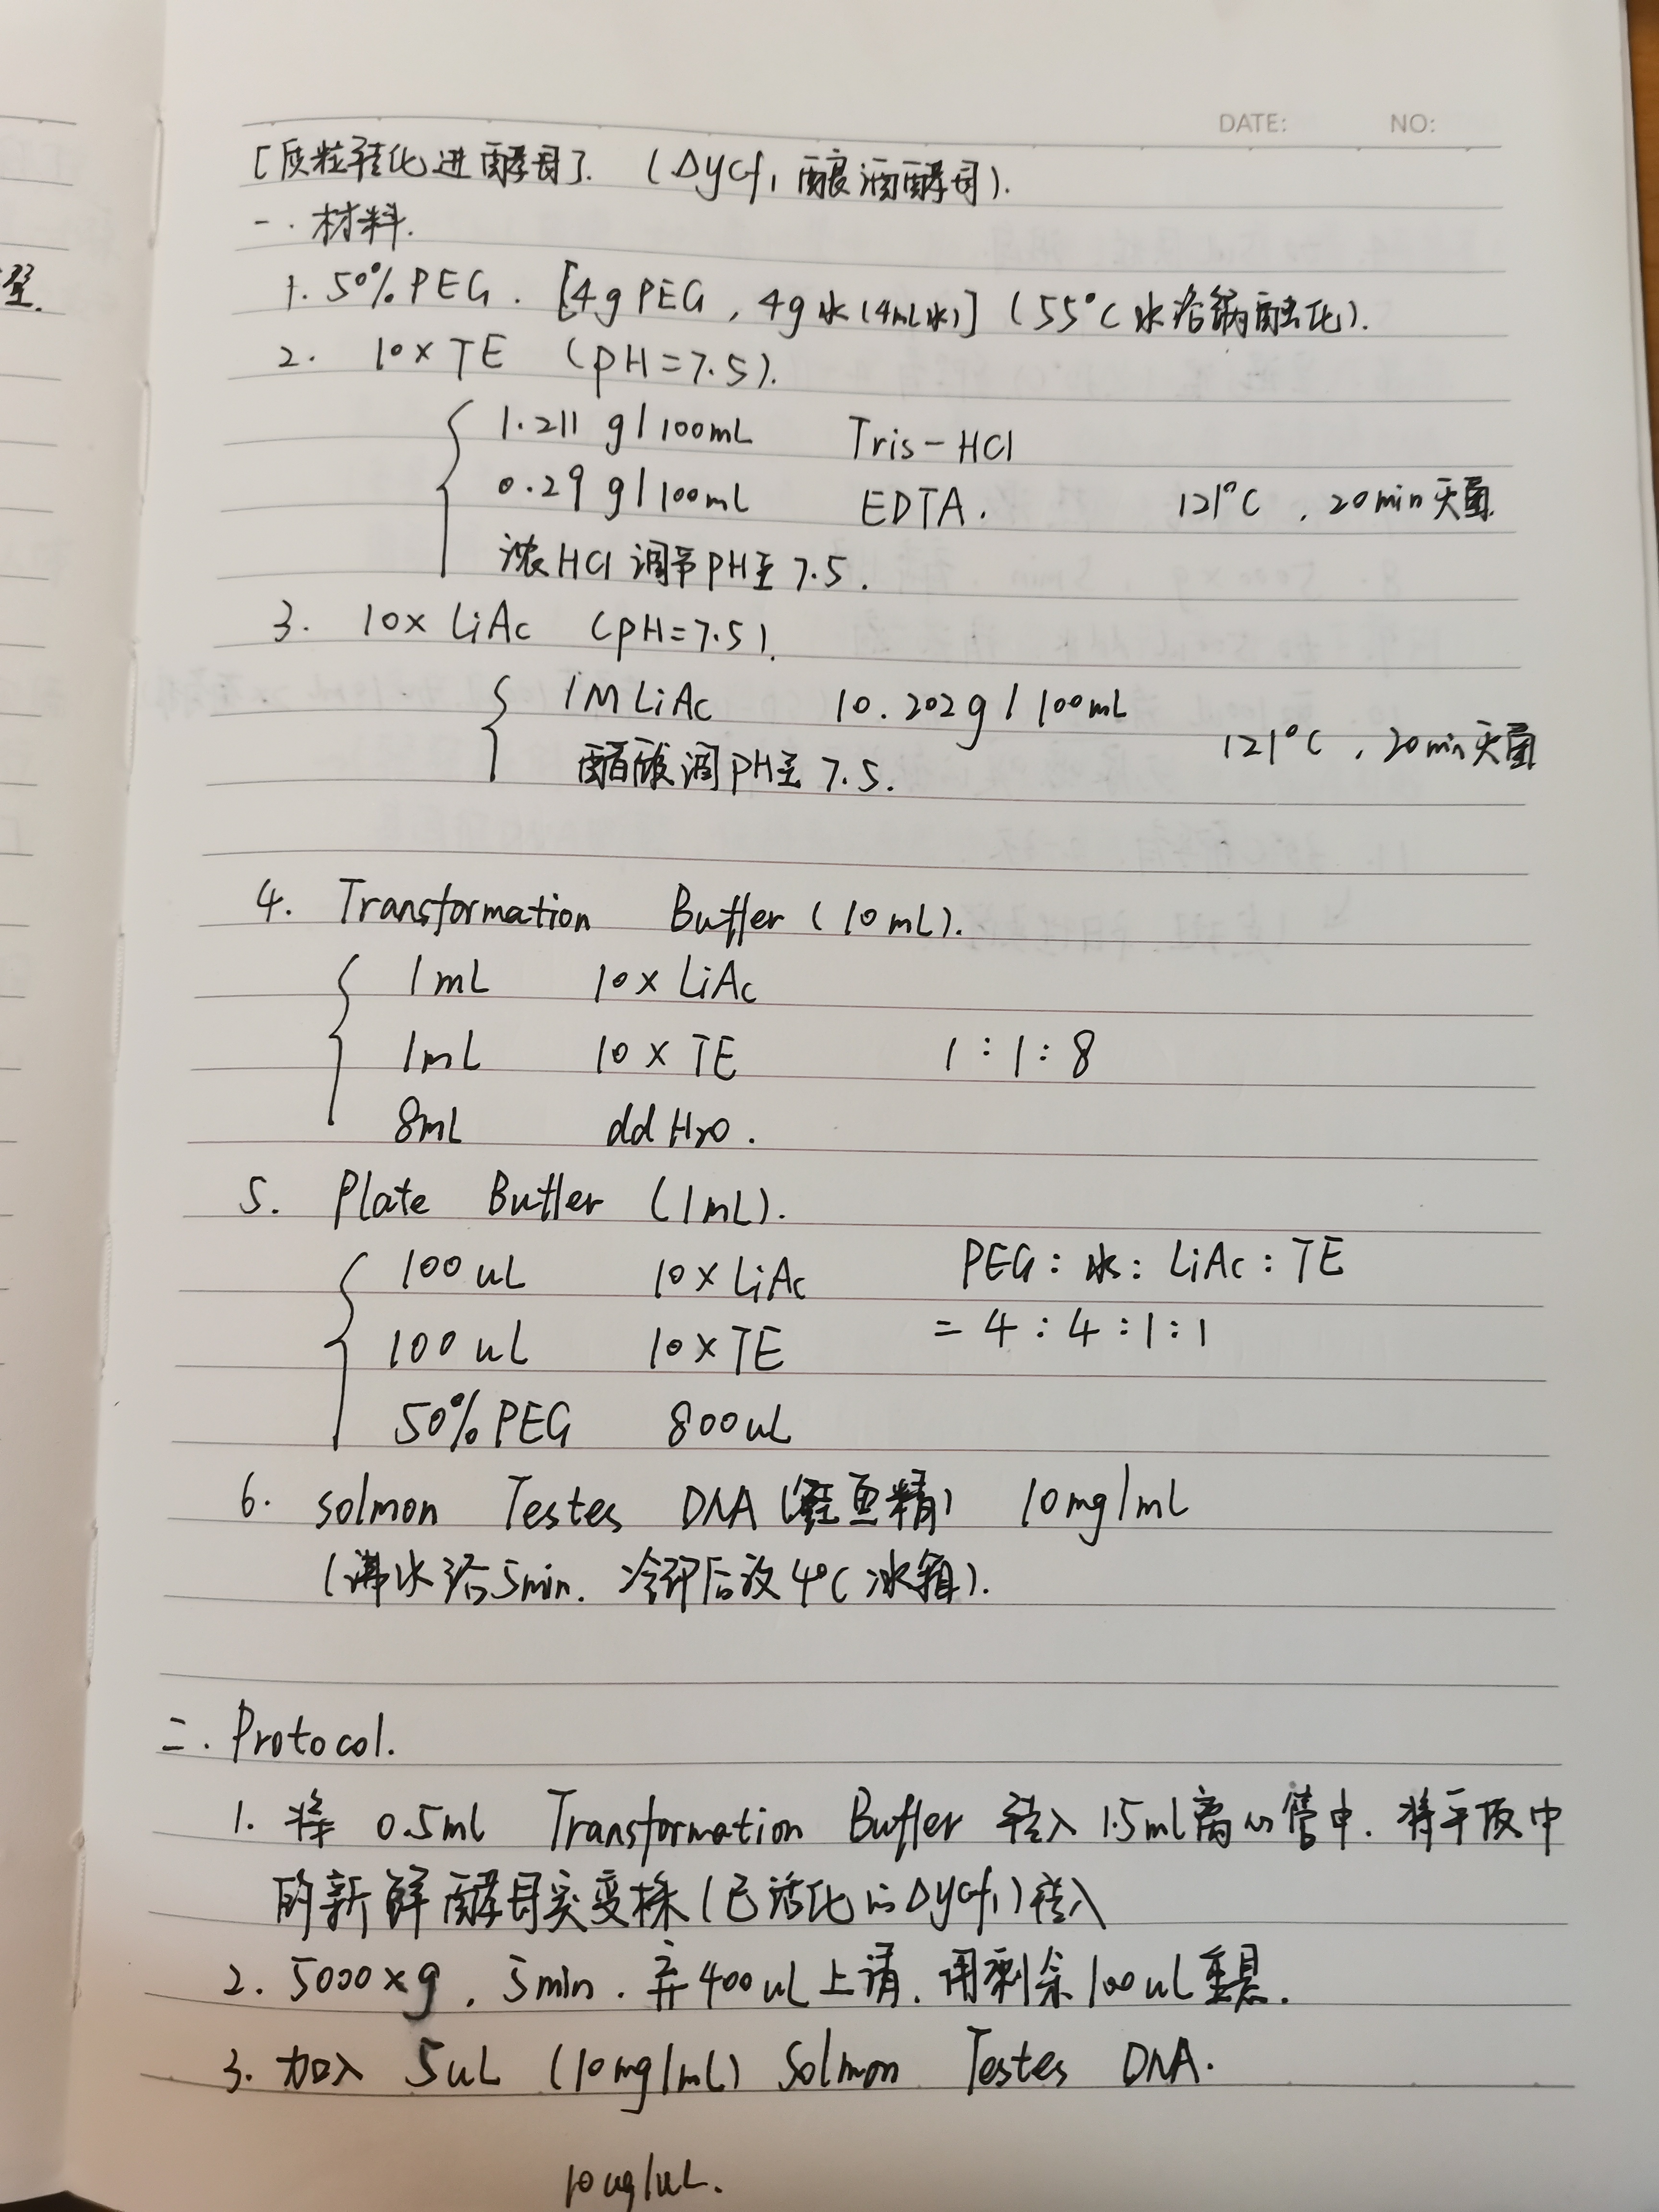 DATE: NO:
[质粒转化进酵母]. (Δycf1 酿酒酵母).
一. 材料.
1. 50% PEG. [4g PEG, 4g水(4mL水)] (55°C水浴锅融化).
2. 10×TE (pH=7.5).
1.211 g/100mL Tris-HCl
0.29 g/100mL EDTA. 121°C, 20min灭菌.
浓HCl调节PH至7.5.
3. 10× LiAc (pH=7.5).
1M LiAc 10.202g/100mL
醋酸调PH至7.5. 121°C, 20min灭菌
4. Transformation Buffer (10mL).
1mL 10× LiAc
1mL 10× TE 1:1:8
8mL ddH2O.
5. Plate Buffer (1mL).
100uL 10×LiAc PEG:水:LiAc:TE
100uL 10×TE =4:4:1:1
50%PEG 800uL
6. Solmon Testes DNA (鲑鱼精) 10mg/mL
(沸水浴5min. 冷却后放4°C冰箱).
二. Protocol.
1. 将 0.5ml Transformation Buffer 转入1.5ml离心管中. 将平板中
的新鲜酵母突变株(已活化的Δycf1)转入
2. 5000×g, 5min. 弃400uL上清. 用剩余100uL重悬.
3. 加入 5uL (10mg/mL) Solmon Testes DNA.
10ug/uL.
翌.